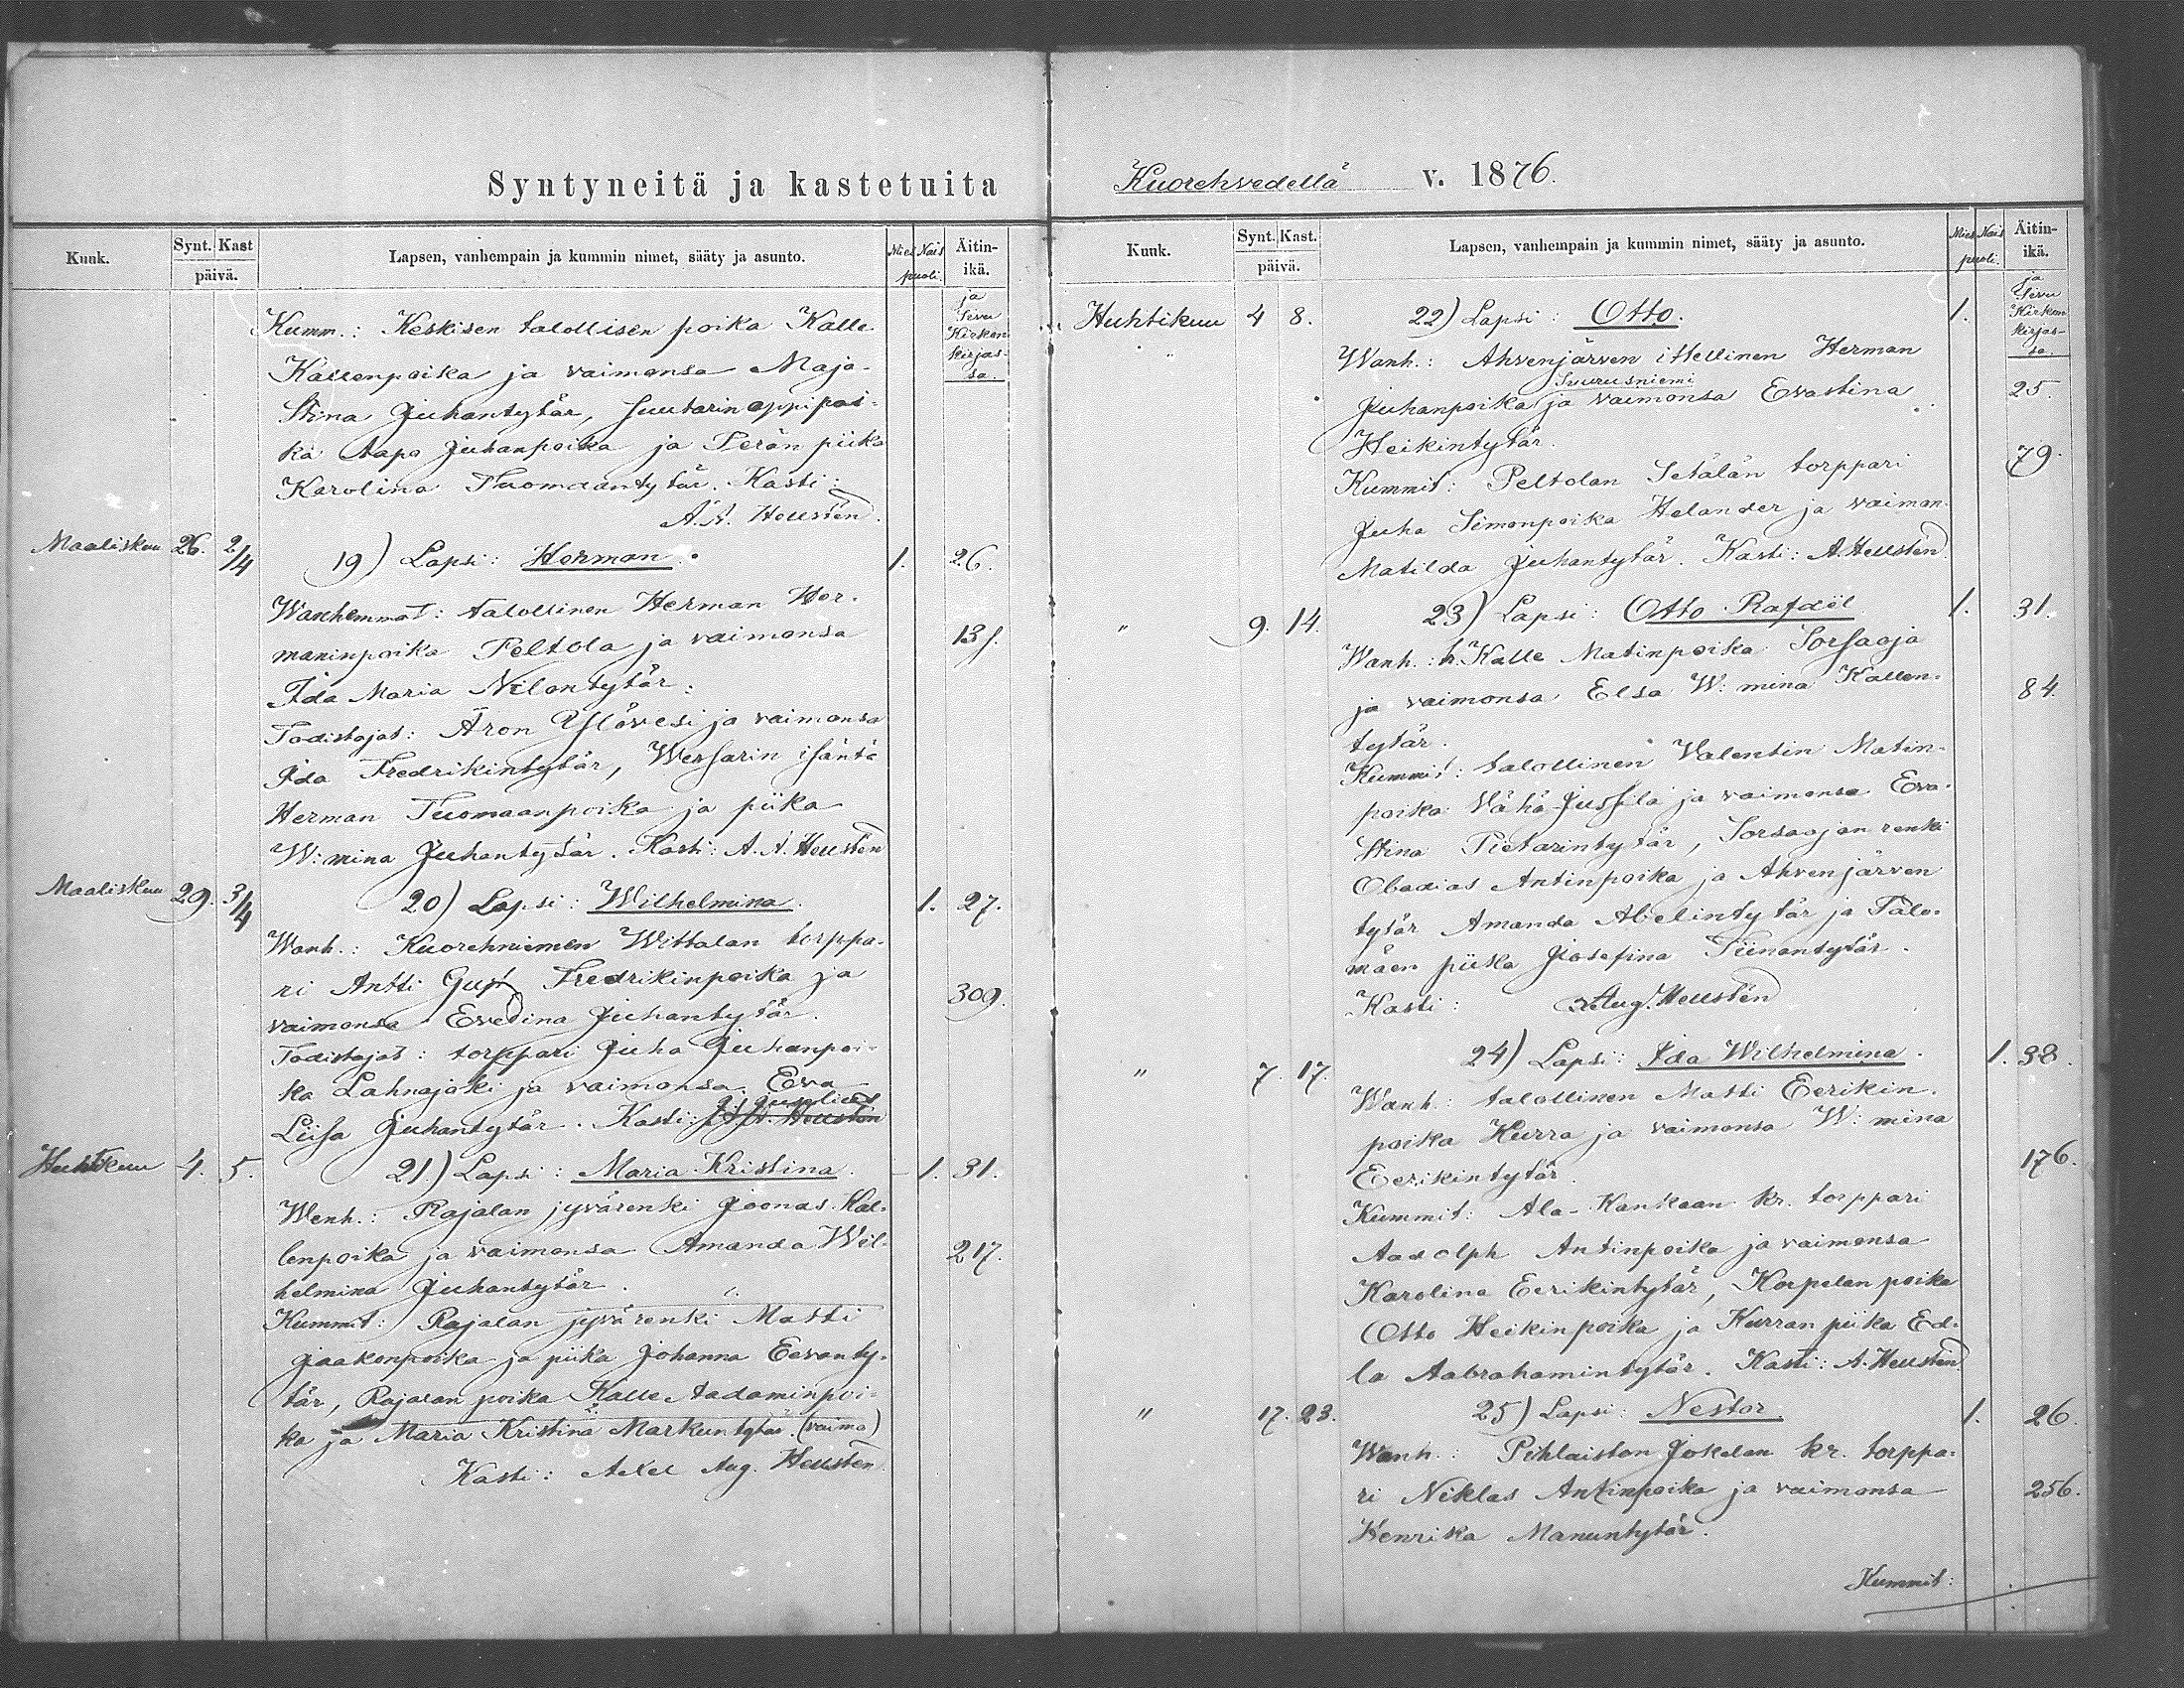 Syntyneitä ja kastetuita
Kuuk.
Synt. Kast
päivä.
Lapsen, vanhempain ja kummin nimet, sääty ja asunto.
Mies Nais
puoli.
Äitin-
ikä.
ja
Sivu
Kirkon
kirjas-
sa.
Kumm.: Keskisen talollisen poika Kalle
Kallenpoika ja vaimonsa Maja-
Stina Juhantytär, suutarin oppi poi-
ka Aapo Juhanpoika ja Perän piika
Karolina Tuomaantytär. Kasti:
A.A. Heusten.
Maaliskuu 26. 2/4 19) Lapsi: Herman. 1. 26.
Wanhemmat: talollinen Herman Her-
maninpoika Peltola ja vaimonsa 131.
Ida Maria Nilontytär.
Todistajat: Aron Ylövesi ja vaimonsa
Ida Fredrikintytär, Wersarin isäntä
Herman Tuomaanpoika ja piika
W:mina Juhantytär. Kasti: A.A. Heusten
Maaliskuu 29. 3/4 20) Lapsi: Wilhelmina. 1. 27.
Wanh.: Kuorehniemen Wittalan torppa-
ri Antti Gust Fredrikinpoika ja 309.
vaimonsa Evedina Juhantytär.
Todistajat: torppari Juha Juhanpoi-
ka Lahnajoki ja vaimonsa Eva
Liisa Juhantytär. Kasti: Heusten
Huhtikuu 4. 5. 21.) Lapsi: Maria Kristina. 1. 31.
Wanh.: Rajalan jyvärenki Joonas Kal-
lenpoika ja vaimonsa Amanda Wil- 217.
helmina Juhantytär.
Kummit: Rajalan jyvärenki Matti
Jaakonpoika ja piika Johanna Eevanty-
tär, Rajalan poika Kalle Aadaminpoi-
ka ja Maria Kristina Markuntytär. (vaimo)
Kasti: Axel Aug. Heusten
Kuorehvedellä v. 1876.
Kuuk.
Synt. Kast.
päivä.
Lapsen, vanhempain ja kummin nimet, sääty ja asunto.
Mies Nais
puoli.
Äitin-
ikä.
ja
Sivu
Kirkon
kirjas-
sa.
Huhtikuu 4 8. 22) Lapsi: Otto. 1.
Wanh.: Ahvenjärven itsellinen Herman
Suurusniemi
Juhanpoika ja vaimonsa Evastina 25.
Heikintytär.
Kummit: Peltolan Setälän torppari 79.
Juha Simonpoika Helander ja vaimon.
Matilda Juhantytär. Kasti: A. Heusten
" 9. 14. 23) Lapsi: Otto Rafael 1. 31.
Wanh.: t. Kalle Matinpoika Sorsaoja
ja vaimonsa Elsa W:mina Kallen- 84.
tytär.
Kummit: talollinen Valentin Matin-
poika Vähä-Jussila ja vaimonsa Eva-
Stina Pietarintytär, Sorsaojan renki
Obadias Antinpoika ja Ahvenjärven
tytär Amanda Abelintytär ja Talo-
mäen piika Josefina Tiinantytär.
Kasti: Aug. Heusten
" 7. 17. 24) Lapsi: Ida Wilhelmina. 1. 38.
Wanh.: talollinen Matti Eerikin-
poika Kurra ja vaimonsa W:mina
Eerikintytär. 176.
Kummit: Ala-Kankaan kr. torppari
Aadolph Antinpoika ja vaimonsa
Karolina Eerikintytär, Korpelan poika
Otto Heikinpoika ja Kurran piika Ed-
la Aabrahamintytär. Kasti: A. Heusten
" 17. 23. 25) Lapsi: Nestor. 1. 26.
Wanh.: Pihlaiston Jokelan kr. torppa-
ri Niklas Antinpoika ja vaimonsa 256.
Henrika Manuntytär.
Kummit: